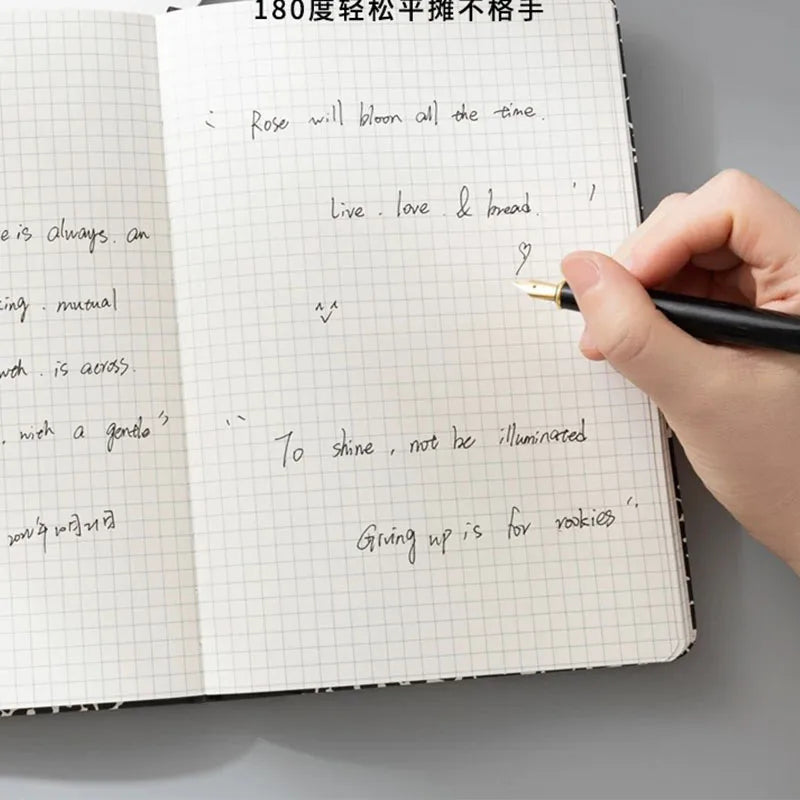 180度轻松平摊不格手
e is always. an
king. mutual
wth. is across.
. with a gentle"
10月21日
" Rose will bloon all the time.
Live. love & bread. "
" To shine, not be illuminated
Giving up is for rookies"